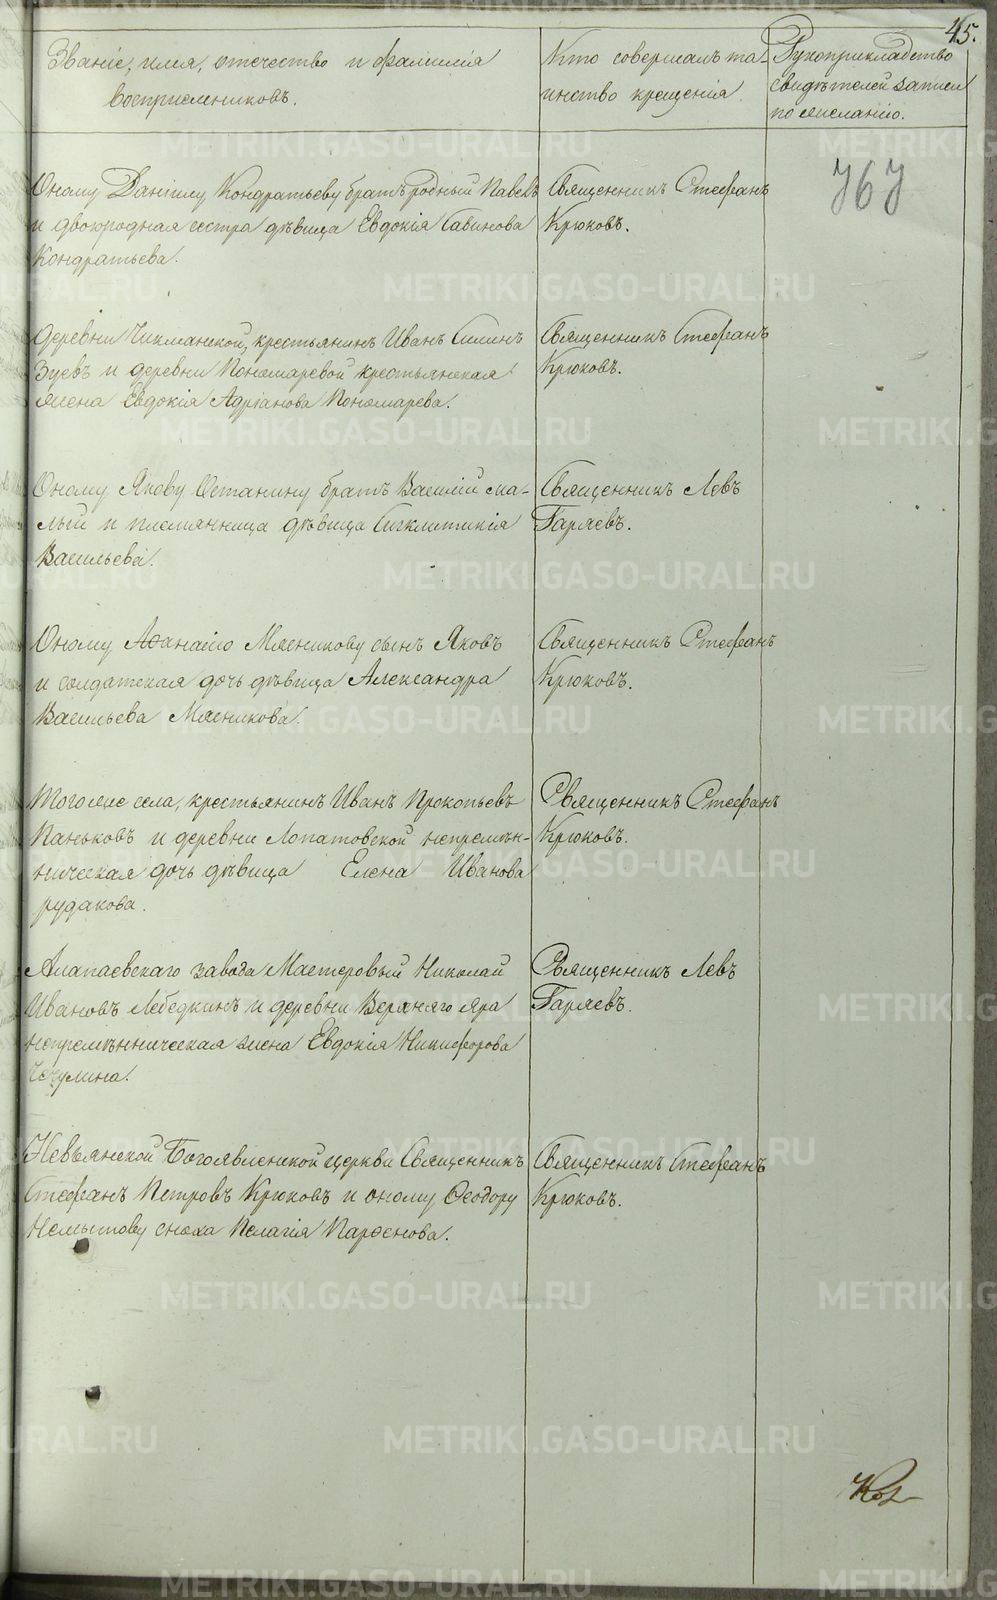 45.
Званіе, имя, отечество и фамилія
воспріемниковъ.
Кто совершалъ та-
инство крещенія.
Рукоприкладство
свидѣтелей записи
по желанію.
767
Оному Даніилу Кондратьеву братъ родный Павелъ
и двоюродная сестра дѣвица Евдокія Савинова
Кондратьева.
Священникъ Стефанъ
Крюковъ.
Деревни Чикманской, крестьянинъ Иванъ Силинъ
Зуевъ и деревни Пономаревой крестьянская
жена Евдокія Адріанова Пономарева.
Священникъ Стефанъ
Крюковъ.
Оному Якову Останину братъ Василій ма-
лый и племянница дѣвица Сигклитикія
Васильева.
Священникъ Левъ
Гаряевъ.
Оному Аѳанасію Мясникову сынъ Яковъ
и солдатская дочь дѣвица Александра
Васильева Мясникова.
Священникъ Стефанъ
Крюковъ.
Тогоже села, крестьянинъ Иванъ Прокопьевъ
Паньковъ и деревни Лопатовской непремѣн-
ническая дочь дѣвица Елена Иванова
рудакова.
Священникъ Стефанъ
Крюковъ.
Алапаевскаго завода Мастеровый Николай
Ивановъ Лебедкинъ и деревни Верхняго яра
непремѣнническая жена Евдокія Никифорова
Чечулина.
Священникъ Левъ
Гаряевъ.
Невьянской Богоявленской церкви Священникъ
Стефанъ Петровъ Крюковъ и оному Ѳеодору
Немытову сноха Пелагія Парѳенова.
Священникъ Стефанъ
Крюковъ.
METRIKI.GASO-URAL.RU